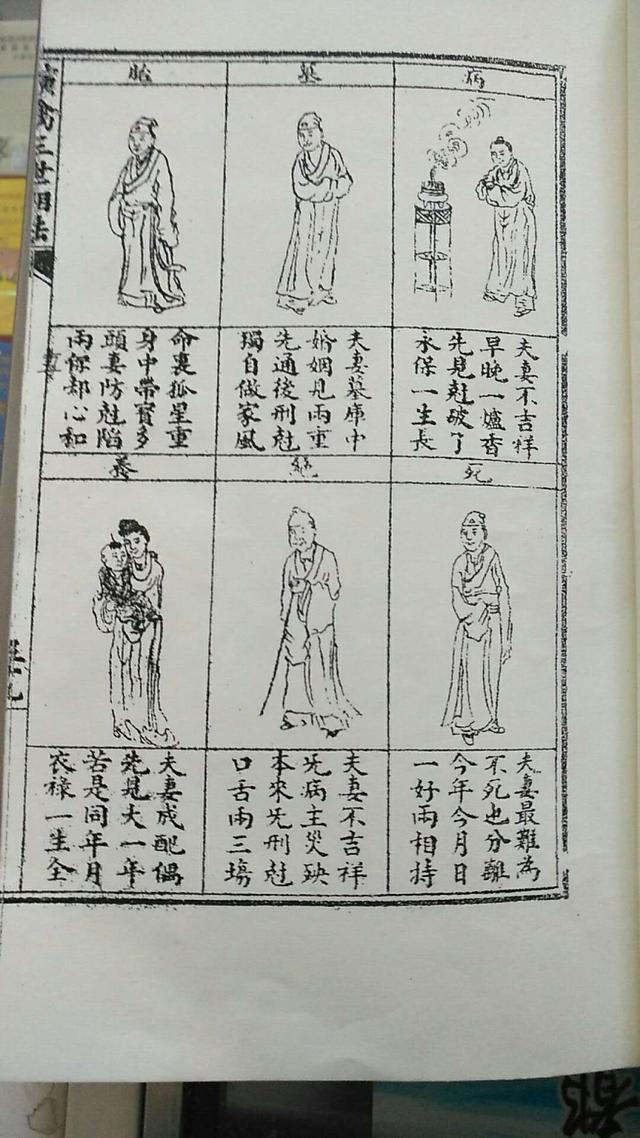 病
夫妻不吉祥
早晚一爐香
先見尅破了
永保一生長
墓
夫妻墓庫中
婚姻見兩重
先通後刑尅
獨自做家風
胎
命裏孤星重
身中帶寳多
頭妻防尅陷
兩保却心和
死
夫妻最難為
不死也分離
今年今月日
一好兩相持
絕
夫妻不吉祥
旡病主災殃
本來旡刑尅
口舌兩三塲
養
夫妻成配偶
先見大一年
若是同年月
衣祿一生全
演禽三世相法